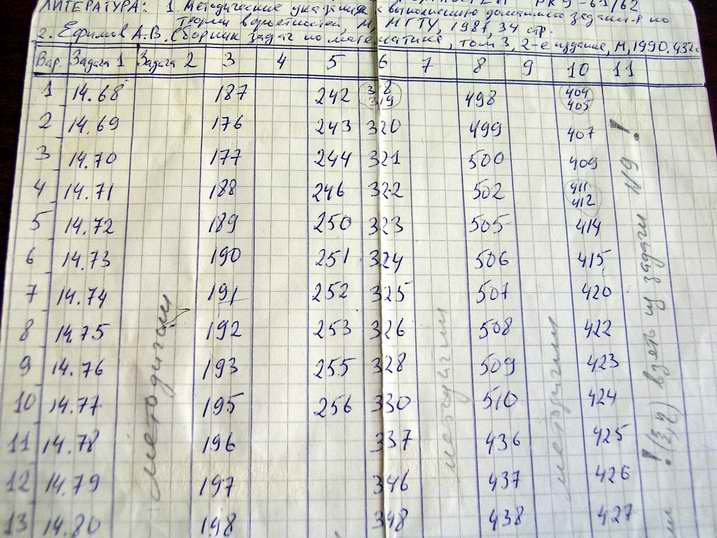 ЛИТЕРАТУРА: 1. Методические указания к выполнению домашнего задания по
теории вероятностей, М, МГТУ, 1981, 34 стр.
2. Ефимов А.В. Сборник задач по математике, том 3, 2-е издание, М, 1990. 432с
Вар. Задача 1 Задача 2 3 4 5 6 7 8 9 10 11
1 14.68 187 242 318 319 498 404 405
2 14.69 176 243 320 499 407
3 14.70 177 244 321 500 409
4 14.71 188 246 322 502 411 412
5 14.72 189 250 323 505 414
6 14.73 190 251 324 506 415
7 14.74 191 252 325 507 420
8 14.75 192 253 326 508 422
9 14.76 193 255 328 509 423
10 14.77 195 256 330 510 424
11 14.78 196 337 436 425
12 14.79 197 346 437 426
13 14.80 198 348 438 427
методички
методички
методички
! (3,4) взять из задачи №9 !